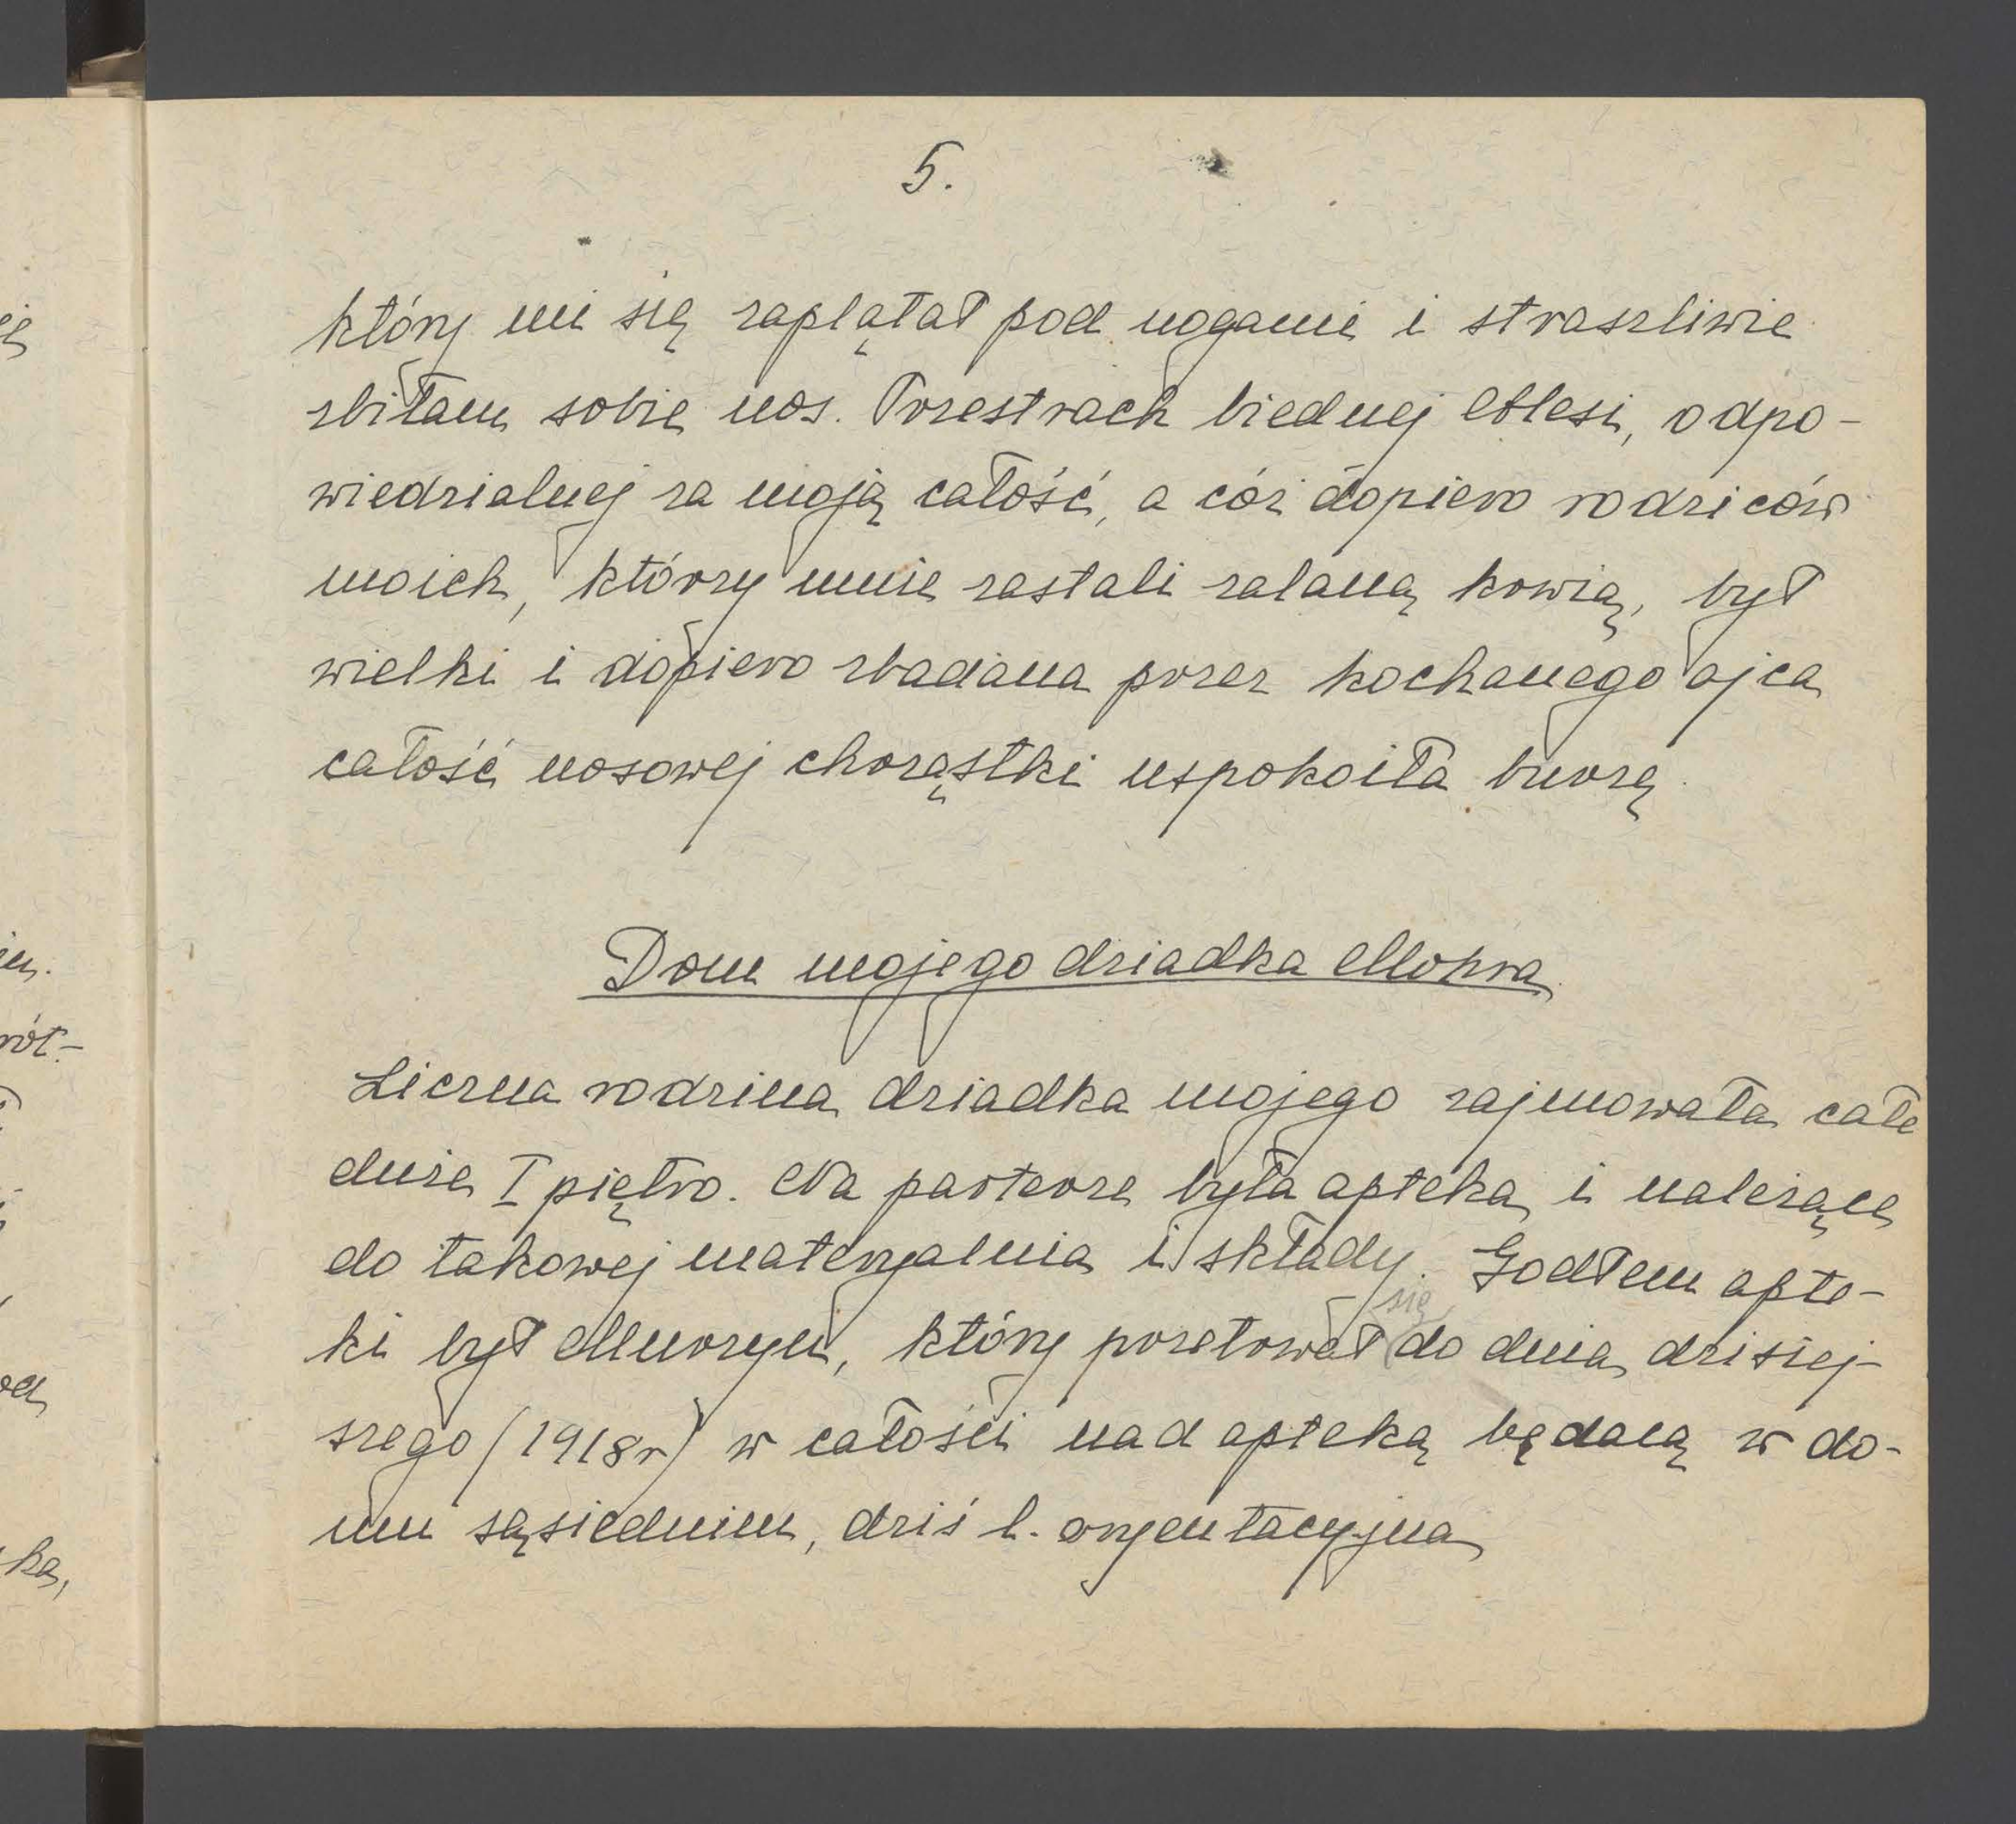 5.
który mi się zaplątał pod nogami i straszliwie
zbiłam sobie nos. Przestrach biednej Olesi, odpo-
wiedzialnej za moją całość, a cóż dopiero rodziców
moich, którzy mnie zastali zalaną kowią, był
wielki i dopiero zbadana przez kochanego ojca
całość nosowej chrząstki uspokoiła burzę.
Dom mojego dziadka Mohra
Liczna rodzina dziadka mojego zajmowała całe
duże I piętro. Na parterze była apteka i należące
do takowej materyalnia i składy. Godłem apte-
ki był Murzyn, który przetował się do dnia dzisiej-
szego (1918r) w całości nad apteką będacą w do-
mu sąsiednim, dziś l. oryentacyjna